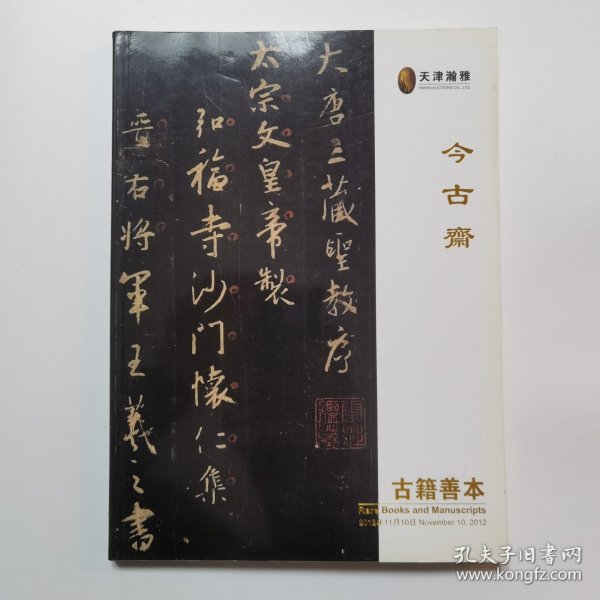 大唐三藏聖教序
太宗文皇帝製
弘福寺沙門懷仁集
晉右將軍王羲之書
天津瀚雅
HANYA AUCTIONS CO., LTD.
今古齋
古籍善本
Rare Books and Manuscripts
2012年11月10日 November 10, 2012
孔夫子旧书网
www.kongfz.com